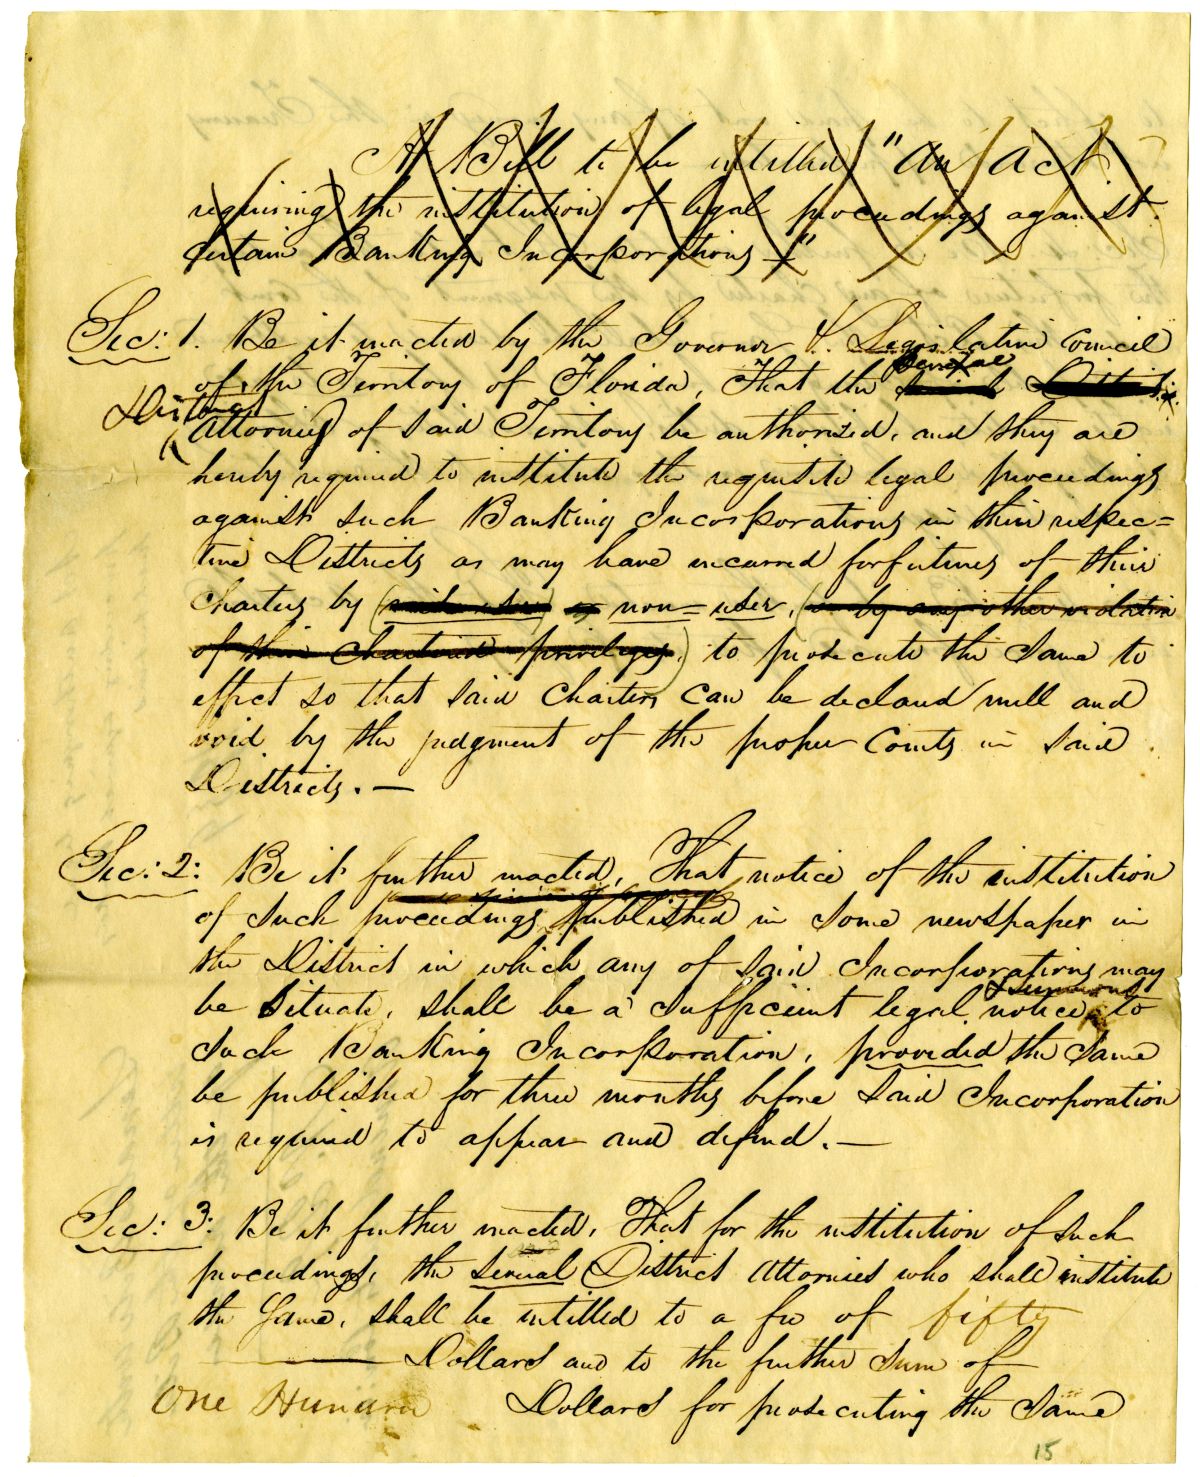 A Bill to be intitled "an act
requiring the institution of legal proceedings against
certain Banking Incorporations—"
Sec: 1. Be it enacted by the Governor &. Legislative Council
of the Territory of Florida, That the several District
District
Attornies of said Territory be authorized, and they are
hereby required to institute the requisite legal proceedings
against such Banking Incorporations in their respec=
tive Districts as may have incurred forfeitures of their
Charters by or non=user, or by any other violation
of their Chartered privileges, to prosecute the Same to
effect so that said Charters can be declared null and
void by the judgment of the proper Courts in said
Districts.—
Sec: 2: Be it further enacted, That notice of the institution
of such proceedings published in some newspaper in
the District in which any of said Incorporations may
& summons
be Situate, shall be a sufficient legal notice to
such Banking Incorporation, provided the Same
be published for three months before said Incorporation
is required to appear and defend.—
Sec: 3: Be it further enacted, That for the institution of such
proceedings, the several District Attornies who shall institute
the Same, shall be intitled to a fee of fifty
Dollars and to the further Sum of
One Hundred Dollars for prosecuting the Same
15